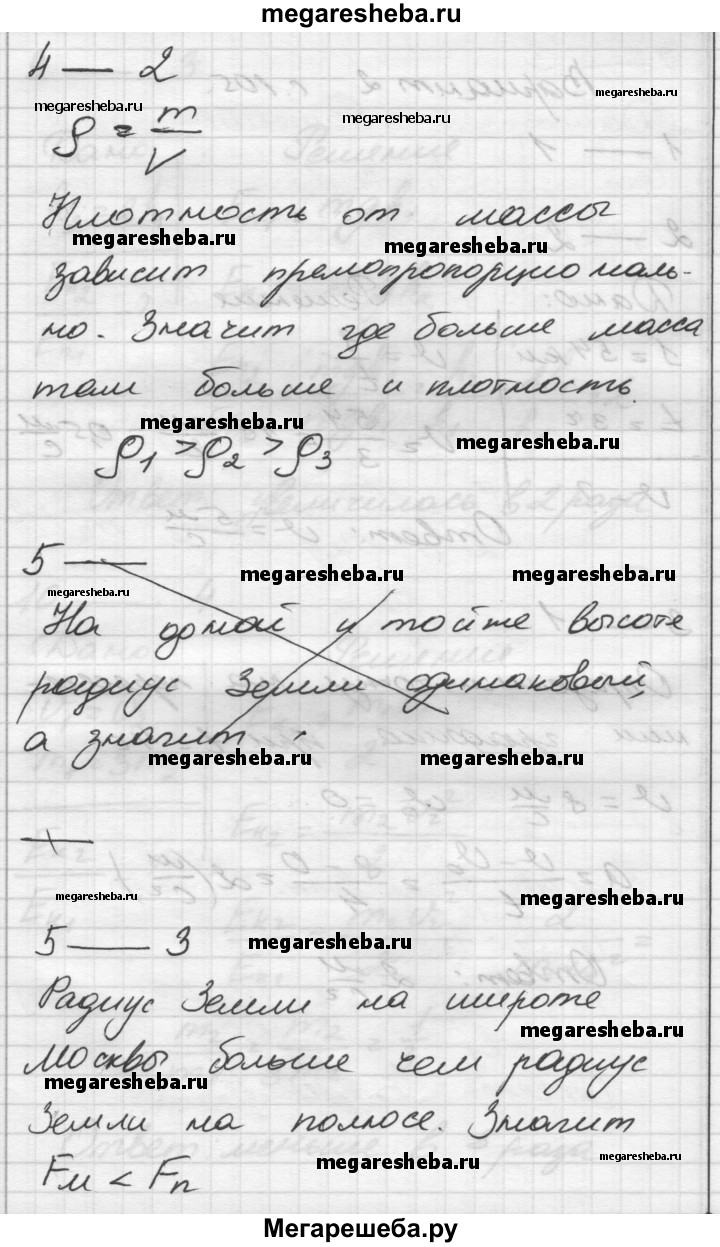 megaresheba.ru
4 — 2
megaresheba.ru megaresheba.ru megaresheba.ru
ρ = m/V
Плотность от массы
megaresheba.ru megaresheba.ru
зависит прямопропорциональ-
но. Значит где больше масса
там больше и плотность.
megaresheba.ru megaresheba.ru
ρ1 > ρ2 > ρ3
5 —
megaresheba.ru megaresheba.ru
megaresheba.ru
На и тойже высоте
радиус Земли одинаковый,
а значит
megaresheba.ru megaresheba.ru
megaresheba.ru megaresheba.ru
5 — 3 megaresheba.ru
Радиус Земли на широте
megaresheba.ru
Москвы больше чем радиус
megaresheba.ru
Земли на полюсе. Значит
Fм < Fп megaresheba.ru megaresheba.ru
Мегарешеба.ру